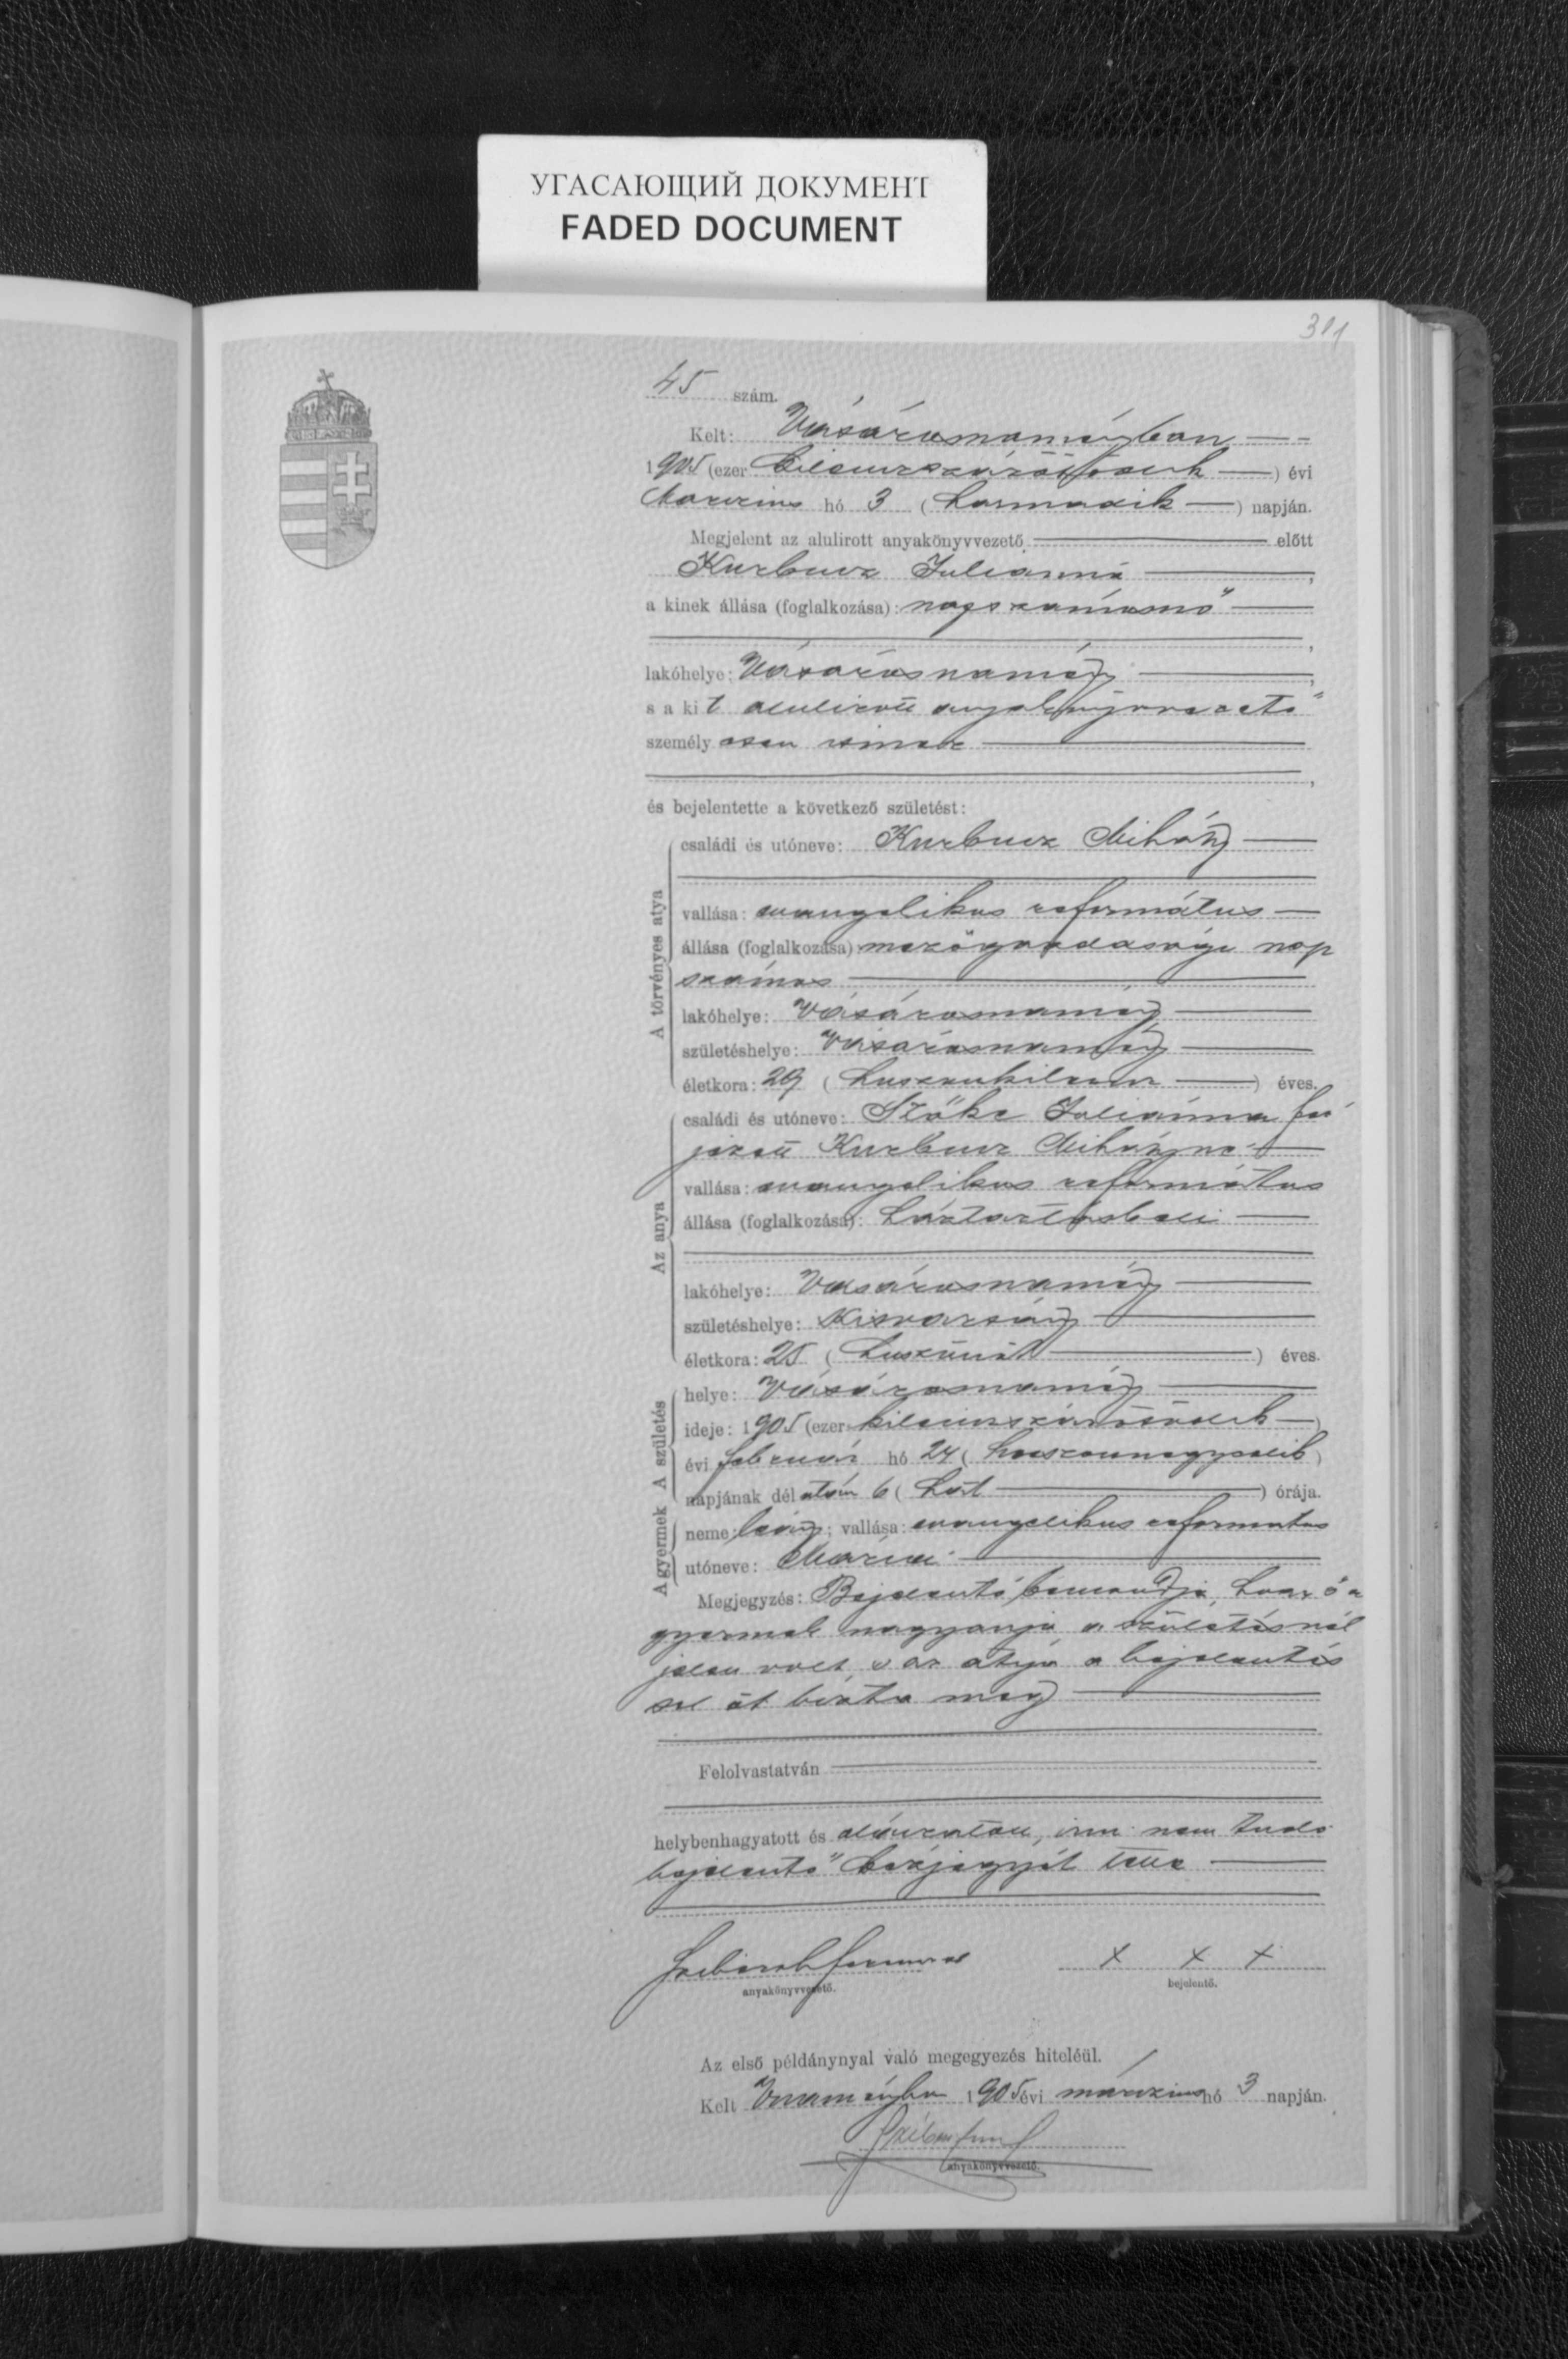 УГАСАЮЩИЙ ДОКУМЕНТ
FADED DOCUMENT
45 szám.
Kelt: Vásárosnaményban
1905 (ezer kilenczszázötödik) évi
Marczius hó 3 (harmadik) napján.
Megjelent az alulirott anyakönyvvezető előtt
Kurbucz Juliánná,
a kinek állása (foglalkozása): napszámosnő,
lakóhelye: Vásárosnamény,
s a kit alulirott anyakönyvvezető
személyesen ismer,
és bejelentette a következő születést:
A törvényes atya
családi és utóneve: Kurbucz Mihály
vallása: evangelikus református
állása (foglalkozása): mezőgazdasági nap
számos
lakóhelye: Vásárosnamény
születéshelye: Vásárosnamény
életkora: 29 (huszonkilencz) éves.
Az anya
családi és utóneve: Szőke Juliánna fér
jezett Kurbucz Mihályné
vallása: evangelikus református
állása (foglalkozása): háztartásbeli
lakóhelye: Vásárosnamény
születéshelye: Kisvarsány
életkora: 25 (huszonöt) éves.
A születés
helye: Vásárosnamény
ideje: 1905 (ezer kilenczszázötödik)
évi február hó 24 (huszonnegyedik)
napjának délután 6 (hat) órája.
A gyermek
neme: leány; vallása: evangelikus református
utóneve: Mária
Megjegyzés: Bejelentő bemondja, hogy ő a
gyermek nagyanyja, a születésnél
jelen volt, s az atyja a bejelentés
sel őt bízta meg
Felolvastatván
helybenhagyatott és aláiratott, irni nem tudó
bejelentő kézjegyét tette
anyakönyvvezető.
x x x
bejelentő.
Az első példánynyal való megegyezés hiteléül.
Kelt Vnaményba 1905 évi márczius hó 3 napján.
anyakönyvvezető.